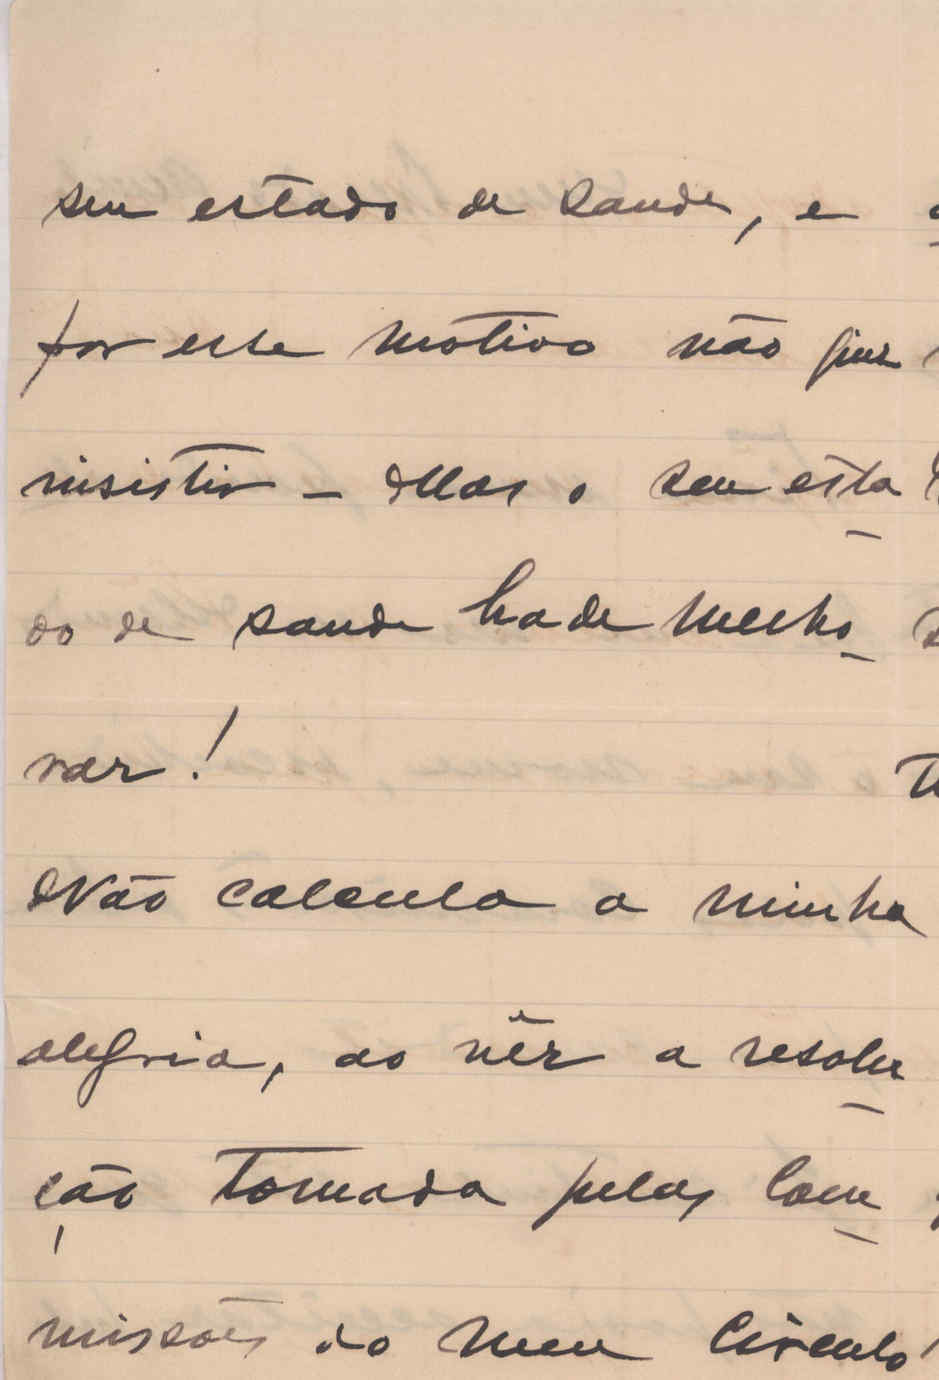 seu estado de saude, e
por esse motivo não quiz
insistir – Mas o seu esta
do de saude hade melho
rar!
Não calcula a minha
alegria, ao vêr a resolu
ção tomada pelas Com
missões do meu Circulo